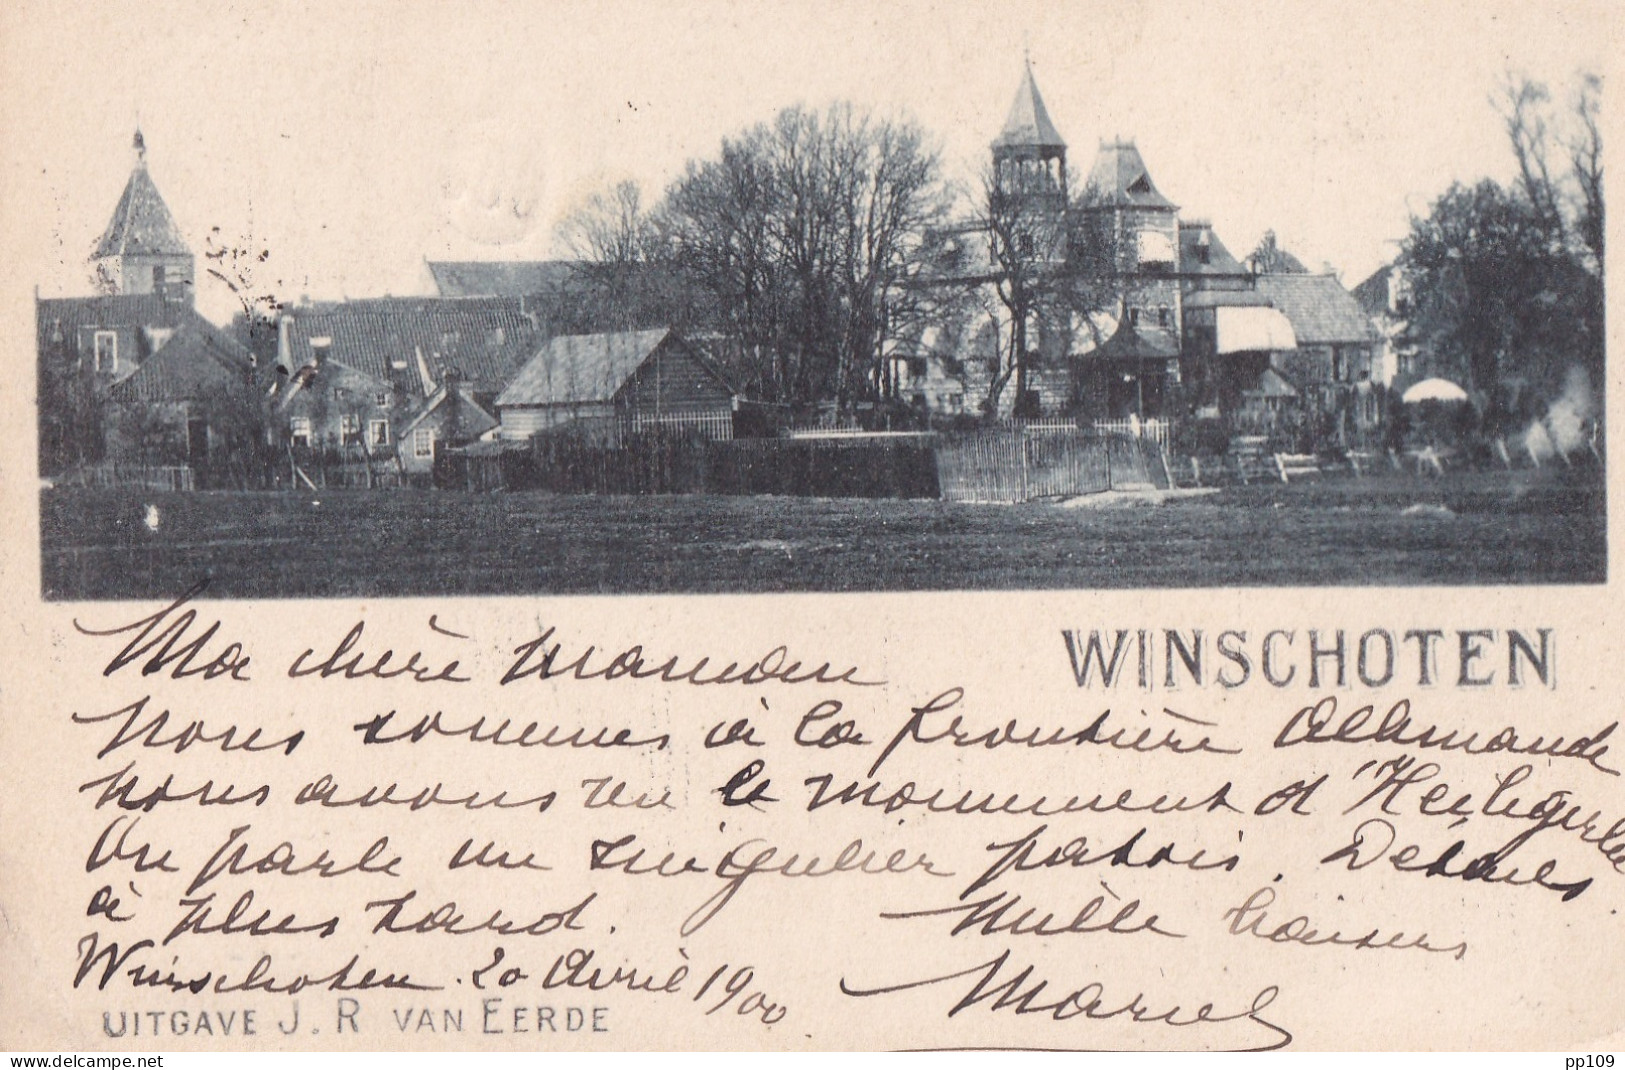 WINSCHOTEN
Ma chère maman
nous sommes à la frontière Allemande
nous avons vu le monument d'Heiligerlee
On parle un singulier patois. Détails
à plus tard. Mille baisers
Winschoten. 20 Avril 1900 Marcel
UITGAVE J. R VAN EERDE
delcampe.net
pp109